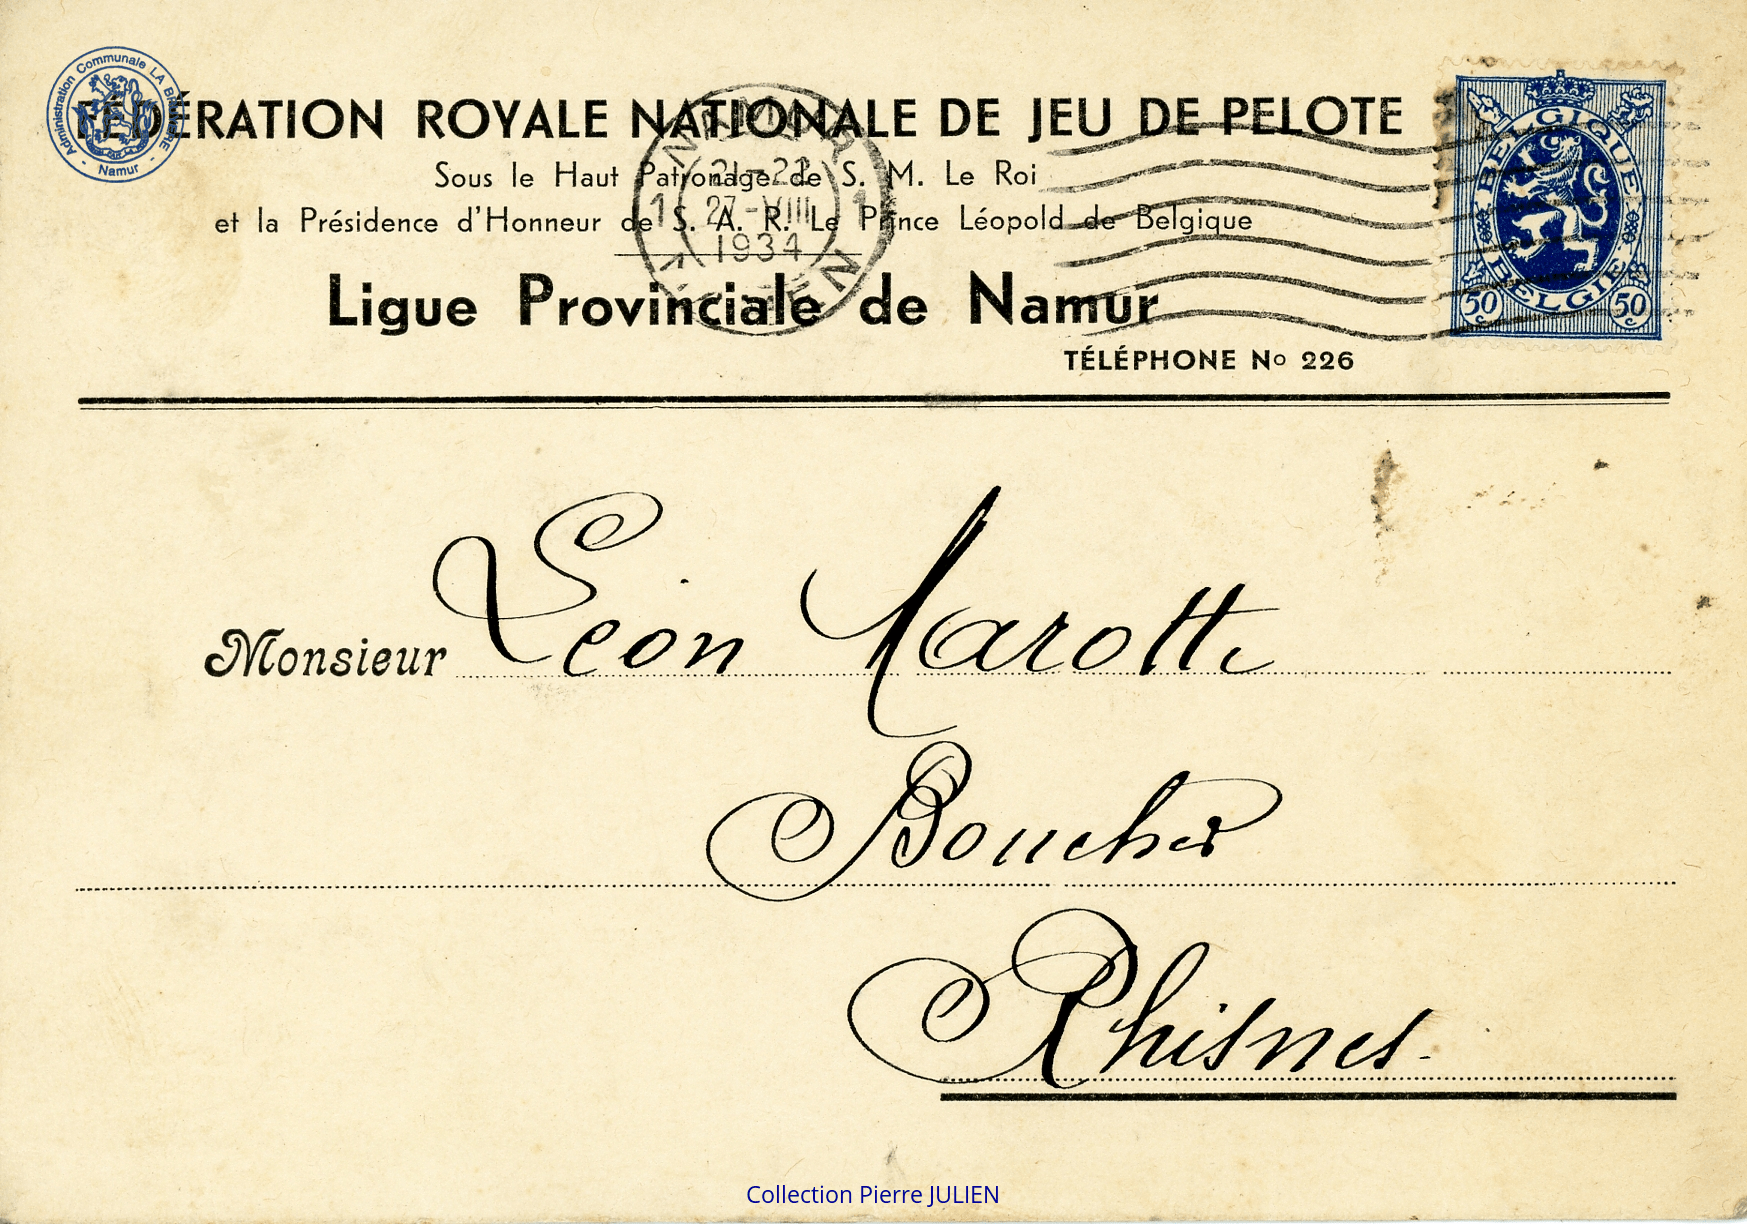 Administration Communale LA BRUYERE - Namur -
FÉDÉRATION ROYALE NATIONALE DE JEU DE PELOTE
Sous le Haut Patronage de S. M. Le Roi
et la Présidence d'Honneur de S. A. R. Le Prince Léopold de Belgique
Ligue Provinciale de Namur
TÉLÉPHONE No 226
NAMUR
1 21-22 1
27-VIII
1934
NAMEN
BELGIQUE
BELGIË
50 c 50 c
Monsieur Léon Marotte
Boucher
Rhisnes.
Collection Pierre JULIEN